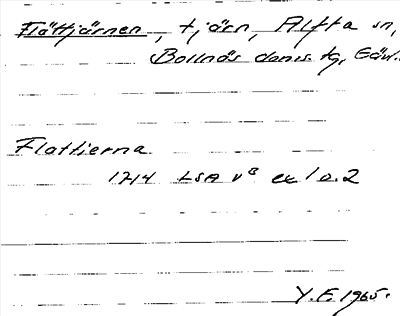 Flåttjärnen, tjärn, Alfta sn,
Bollnäs doms. tg, Gävl.
Flattierna
1714 LSA v⁸ ex 1 o. 2
Y.E. 1965.